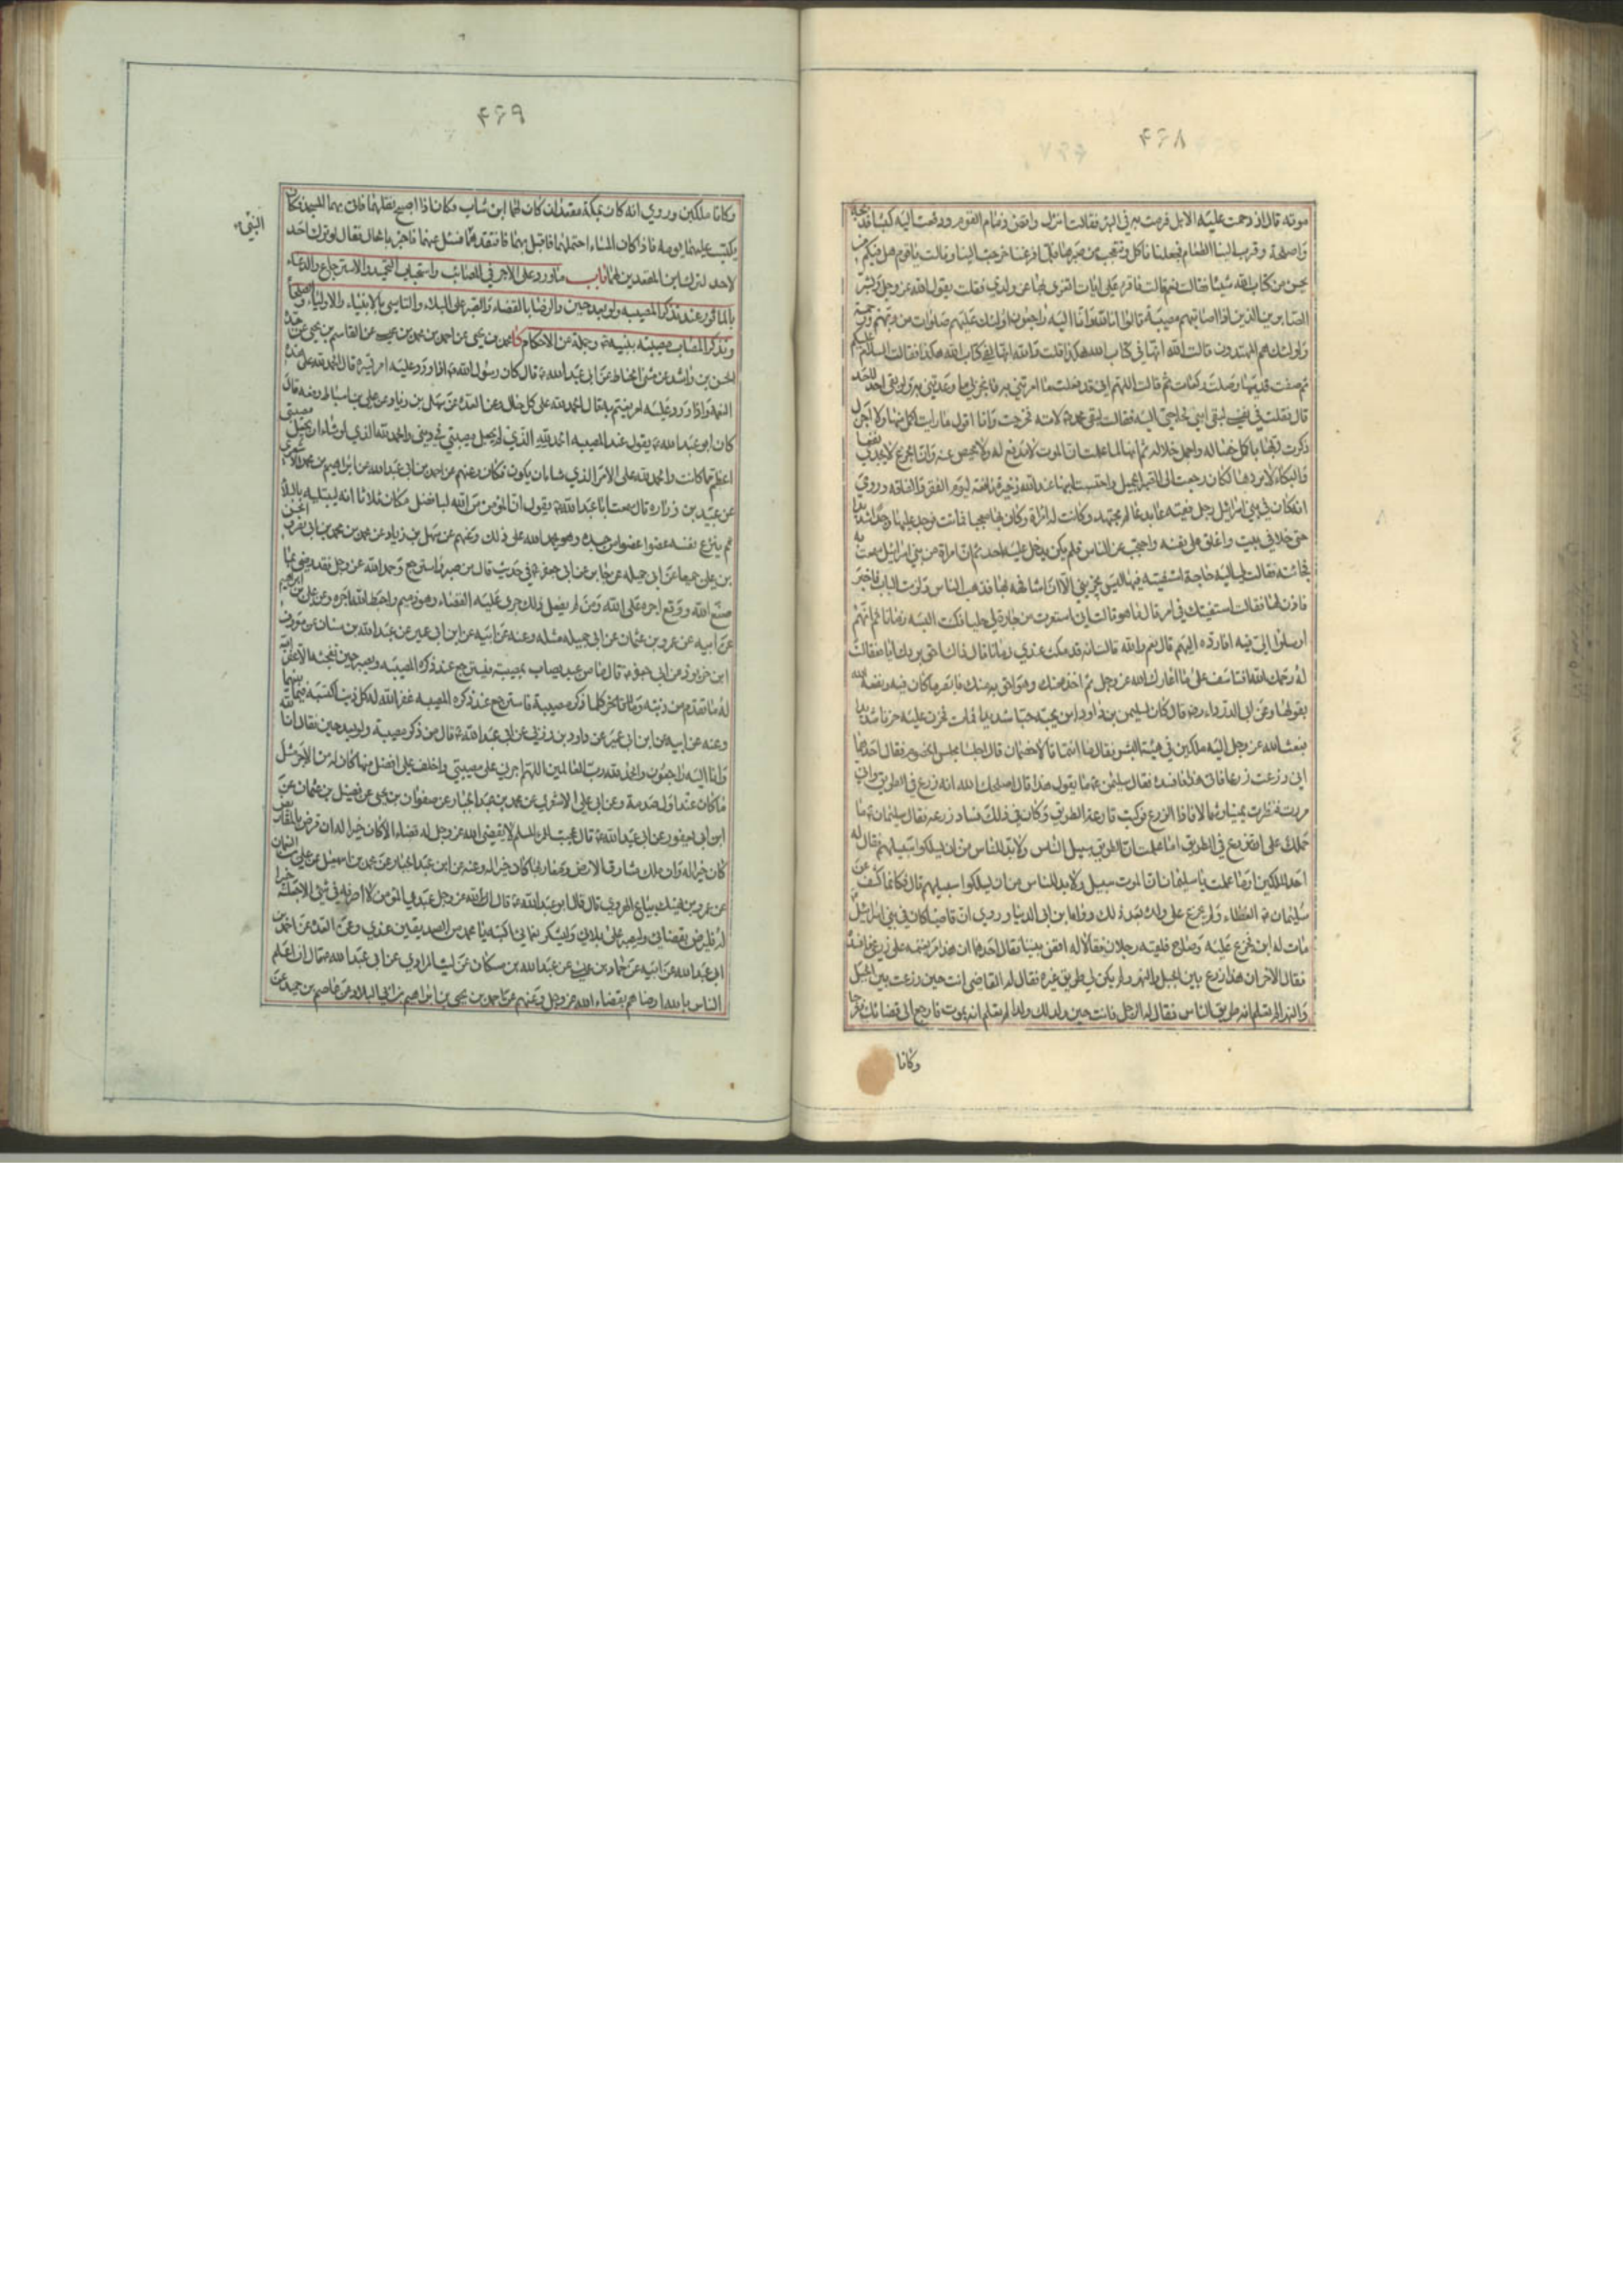 ۴۶۸
موته قال ازدحمت عليه الابل فرمت به في البئر فقالت انزل واقض ذمام القوم ودفعت اليه كبشا فذبحه
واصلحه وقرب الينا الطعام فجعلنا ناكل ونتعجب من صبرها فلما فرغنا خرجت الينا وقالت يا قوم هل فيكم من
يحسن من كتاب الله شيئا فقلت نعم قالت فاقرء علي ايات اتعزى بها عن ولدي فقلت يقول الله عز وجل وبشر
الصابرين الذين اذا اصابتهم مصيبة قالوا انا لله وانا اليه راجعون اولئك عليهم صلوات من ربهم ورحمة
واولئك هم المهتدون قالت الله انها في كتاب الله هكذا قلت والله انها لفي كتاب الله هكذا فقالت السلام عليكم
ثم صفت قدميها وصلت ركعات ثم قالت اللهم اني قد فعلت ما امرتني به فانجز لي ما وعدتني به ولو بقي احد لاحد
قال فقلت في نفسي لبقي ابني لحاجتي اليه فقالت لبقي محمد ص لامته فخرجت وانا اقول ما رايت اكمل منها ولا اجزل
ذكرت ربها باكمل خصاله واجمل خلاله ثم انها لما علمت ان الموت لا مدفع له ولا محيص عنه وان الجزع لا يجدي نفعا
والبكاء لا يرد هالكا رجعت الى الصبر الجميل واحتسبت ابنها عند الله ذخيرة نافعة ليوم الفقر والفاقه وروي
انه كان في بني اسرائيل رجل فقيه عابد عالم مجتهد وكانت له امراة وكان بها معجبا فماتت فوجد عليها وجدا شديدا
حتى خلا في بيت واغلق على نفسه واحتجب عن الناس فلم يكن يدخل عليه احد ثم ان امراة من بني اسرائيل سمعت به
فجائته فقالت لي اليه حاجة استفتيه فيها ليس يجزيني الا ان اشافهه بها فذهب الناس ولزمت الباب فاخبر
فاذن لها فقالت استفتيك في امر قال ما هو قالت اني استعرت من جارة لي حليا فكنت البسه زمانا ثم انهم
ارسلوا الي فيه افارده اليهم قال نعم والله قالت انه قد مكث عندي زمانا قال ذاك احق بردك اياه فقالت
له رحمك الله افتاسف على ما اعارك الله عز وجل ثم اخذه منك وهو احق به منك فابصر ما كان فيه ونفعه الله
بقولها وعن ابي الدرداء رضه قال كان لسليمن بن داود ابن يحبه حبا شديدا فمات فحزن عليه حزنا شديدا
فبعث الله عز وجل اليه ملكين في هيئة البشر فقال ما انتما قالا خصمان قال اجلسا مجلس الخصوم فقال احدهما
اني زرعت زرعا فاتى هذا فافسده فقال سليمن ع ما يقول هذا قال اصلحك الله انه زرع في الطريق واني
مررت فنظرت يمينا وشمالا فاذا الزرع فركبت قارعة الطريق وكان في ذلك فساد زرعه فقال سليمان ع ما
حملك على ان تزرع في الطريق اما علمت ان الطريق سبيل الناس ولا بد للناس من ان يسلكوا سبيلهم فقال له
احد الملكين اوما علمت يا سليمان ان الموت سبيل ولا بد للناس من ان يسلكوا سبيلهم قال فكانما كشف عن
سليمان ع الغطاء ولم يجزع على ولده بعد ذلك رواها ابن ابي الدنيا وروي ان قاضيا كان في بني اسرائيل
مات له ابن فجزع عليه وصاح فلقيه رجلان فقالا له اقض بيننا فقال احدهما ان هذا مر بغنمه على زرعي فافسده
فقال الاخر ان هذا زرع بين الجبل والنهر ولم يكن لي طريق غيره فقال له القاضي انت حين زرعت بين الجبل
والنهر الم تعلم انه طريق الناس فقال له الرجل فانت حين ولد لك ولد الم تعلم انه يموت فارجع الى قضائك ثم عرجا
وكانا
۴۶۹
وكانا ملكين وروي انه كان بمكة مقعدان كان لهما ابن شاب وكان اذا اصبح نقلهما فاتى بهما المسجد فكان
يكتسب عليهما يومه فاذا كان المساء احتملهما فاقبل بهما فافتقده النبي ص فسئل عنهما فاخبر بالحال فقال لو ترك احد
لاحد لترك ابن المقعدين لهما باب ما ورد على الاجر في المصائب واستحباب التحميد والاسترجاع والدعاء
بالماثور عند تذكر المصيبه ولو بعد حين والرضا بالقضاء والصبر على البلاء والتاسي بالانبياء والاولياء والصلحاء
وتذكر المصاب مصيبته بنبيه ص وجملة من الاحكام كا محمد بن يحيى عن احمد بن محمد بن عيسى عن القاسم بن يحيى عن جده
الحسن بن راشد عن مثنى الحناط عن ابي عبد الله ع قال كان رسول الله ص اذا ورد عليه امر يسره قال الحمد لله على هذه
النعمة واذا ورد عليه امر يغتم به قال الحمد لله على كل حال وعن العده عن سهل بن زياد عن علي بن اسباط رفعه قال
كان ابو عبد الله ع يقول عند المصيبه الحمد لله الذي لم يجعل مصيبتي في ديني والحمد لله الذي لو شاء ان يجعل مصيبتي
اعظم مما كانت والحمد لله على الامر الذي شاء ان يكون فكان وعنهم عن احمد بن ابي عبد الله عن ابراهيم بن محمد الاشعري
عن عبيد بن زراره قال سمعت ابا عبد الله ع يقول ان المؤمن من الله لبافضل مكان ثلاثا انه ليبتليه بالبلاء
ثم ينزع نفسه عضوا عضوا من جسده وهو يحمد الله على ذلك وعنهم عن سهل بن زياد عن الحسن
بن علي جميعا عن ابي جميله عن جابر عن ابي جعفر ع في حديث قال من صبر واسترجع وحمد الله عز وجل فقد رضي بما
صنع الله ووقع اجره على الله ومن لم يفعل ذلك جرى عليه القضاء وهو ذميم واحبط الله اجره وعن علي بن ابراهيم
عن ابيه عن عمرو بن عثمان عن ابي جميله مثله وعنه عن ابيه عن ابن ابي عمير عن عبد الله بن سنان عن معروف
ابن خربوذ عن ابي جعفر ع قال ما من عبد يصاب بمصيبة فيسترجع عند ذكره المصيبه ويصبر حين تفجئه الا غفر الله
له ما تقدم من ذنبه وما تاخر وكلما ذكر مصيبة فاسترجع عند ذكره المصيبه غفر الله له كل ذنب اكتسبه فيما بينهما
وعنه عن ابيه عن ابن ابي عمير عن داود بن زربي عن ابي عبد الله ع قال من ذكر مصيبة ولو بعد حين فقال انا لله
وانا اليه راجعون والحمد لله رب العالمين اللهم اجرني على مصيبتي واخلف علي افضل منها كان له من الاجر مثل
ما كان عند اول صدمة وعن ابي علي الاشعري عن محمد بن عبد الجبار عن صفوان بن يحيى عن فضيل بن عثمان عن
ابن ابي يعفور عن ابي عبد الله ع قال عجبت للمرء المسلم لا يقضي الله عز وجل له قضاء الا كان خيرا له ان قرض بالمقاريض
كان خيرا له وان ملك مشارق الارض ومغاربها كان خيرا له وعنه عن ابن عبد الجبار عن محمد بن اسمعيل عن علي بن النعمان
عن عمرو بن نهيك بياع الهروي قال قال ابو عبد الله ع قال الله عز وجل عبدي المؤمن لا اصرفه في شئ الا جعلته خيرا
له فليرض بقضائي وليصبر على بلائي وليشكر نعمائي اكتبه يا محمد من الصديقين عندي وعن العده عن احمد بن
ابي عبد الله عن ابيه عن حماد بن عيسى عن عبد الله بن مسكان عن ليث المرادي عن ابي عبد الله ع قال ان اعلم
الناس بالله ارضاهم بقضاء الله عز وجل وعنهم عن احمد عن يحيى بن ابراهيم بن ابي البلاد عن عاصم بن حميد عن